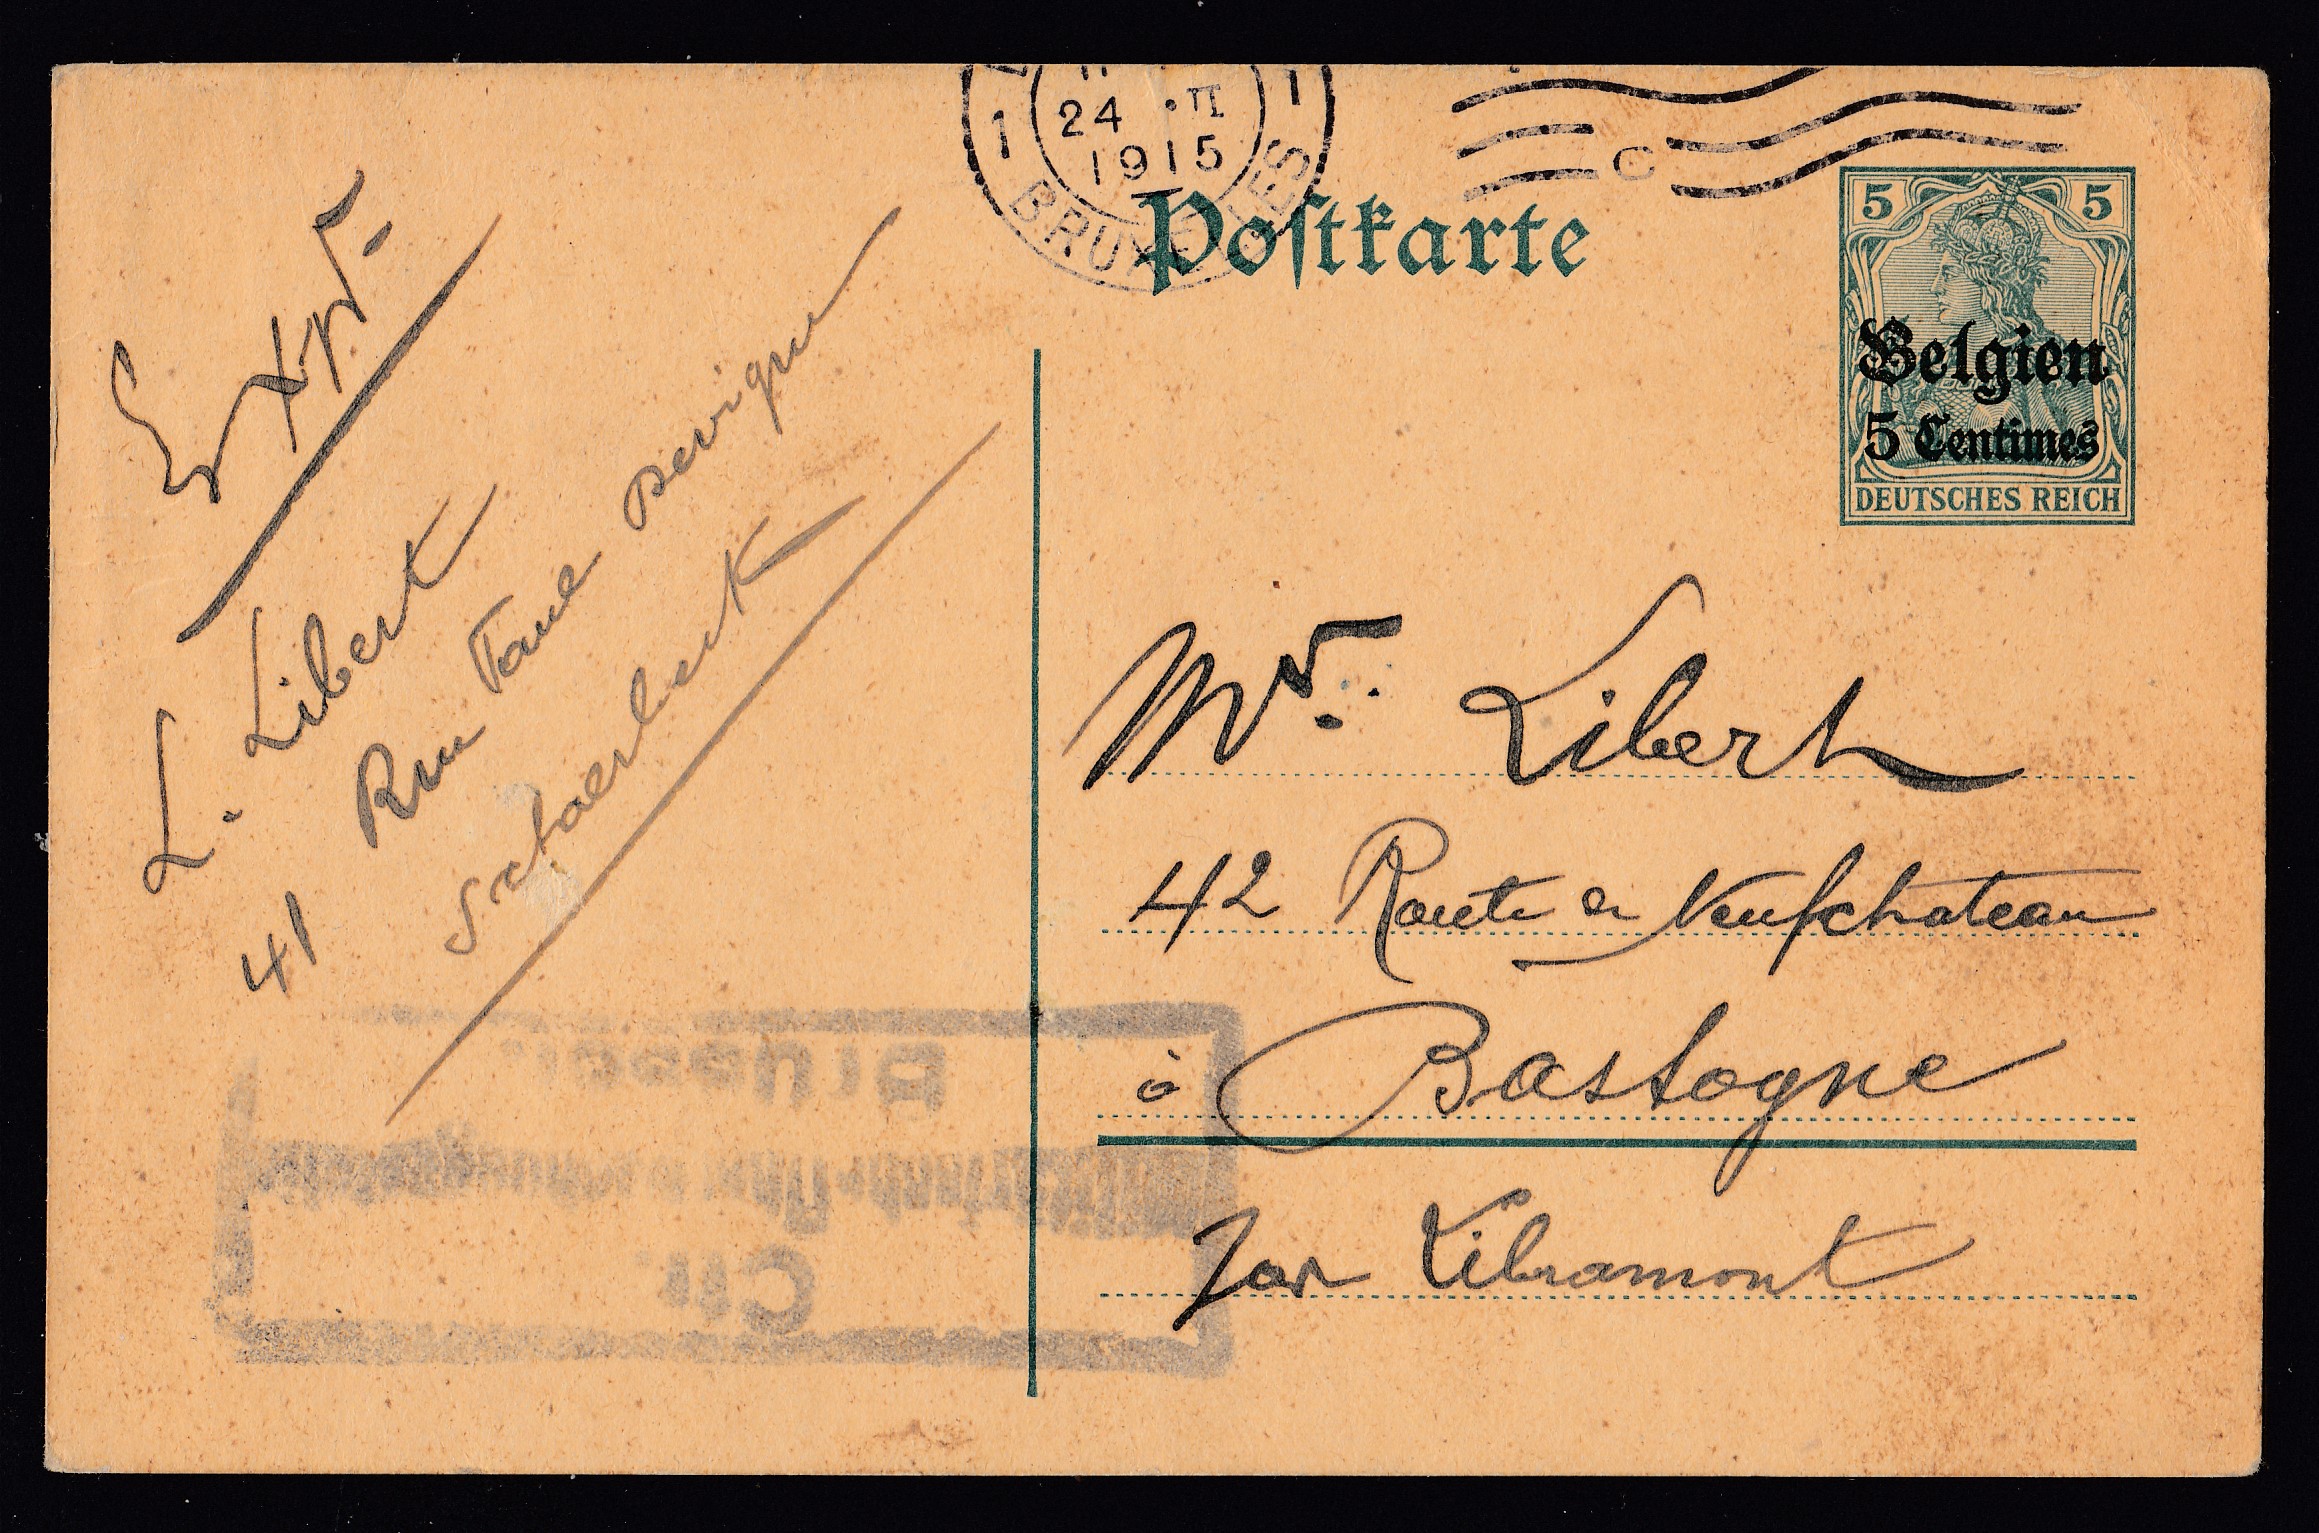 1 24 · II 1
1915
BRUXELLES
C
Postkarte
5 5
Belgien
5 Centimes
DEUTSCHES REICH
Expr.
L. Libert
41 Rue
Schaerbeek
Mr. Libert
42 Route de Neufchateau
à Bastogne
par Libramont